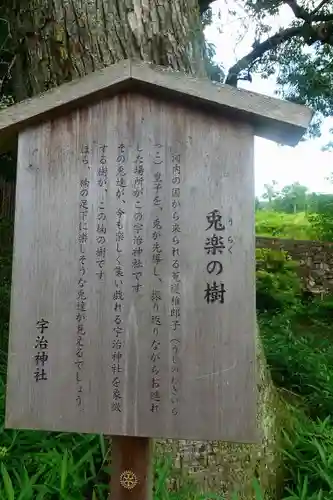 うらく
兎楽の樹
河内の国から来られる菟道稚郎子(うじのわきいらつこ)皇子を、兎が先導し、振り返りながらお連れした場所がこの宇治神社です。
その兎達が、今も楽しく集い戯れる宇治神社を象徴する樹が、この椋の樹です。
ほら、椋の足下に楽しそうな兎達が見えるでしょう
宇治神社